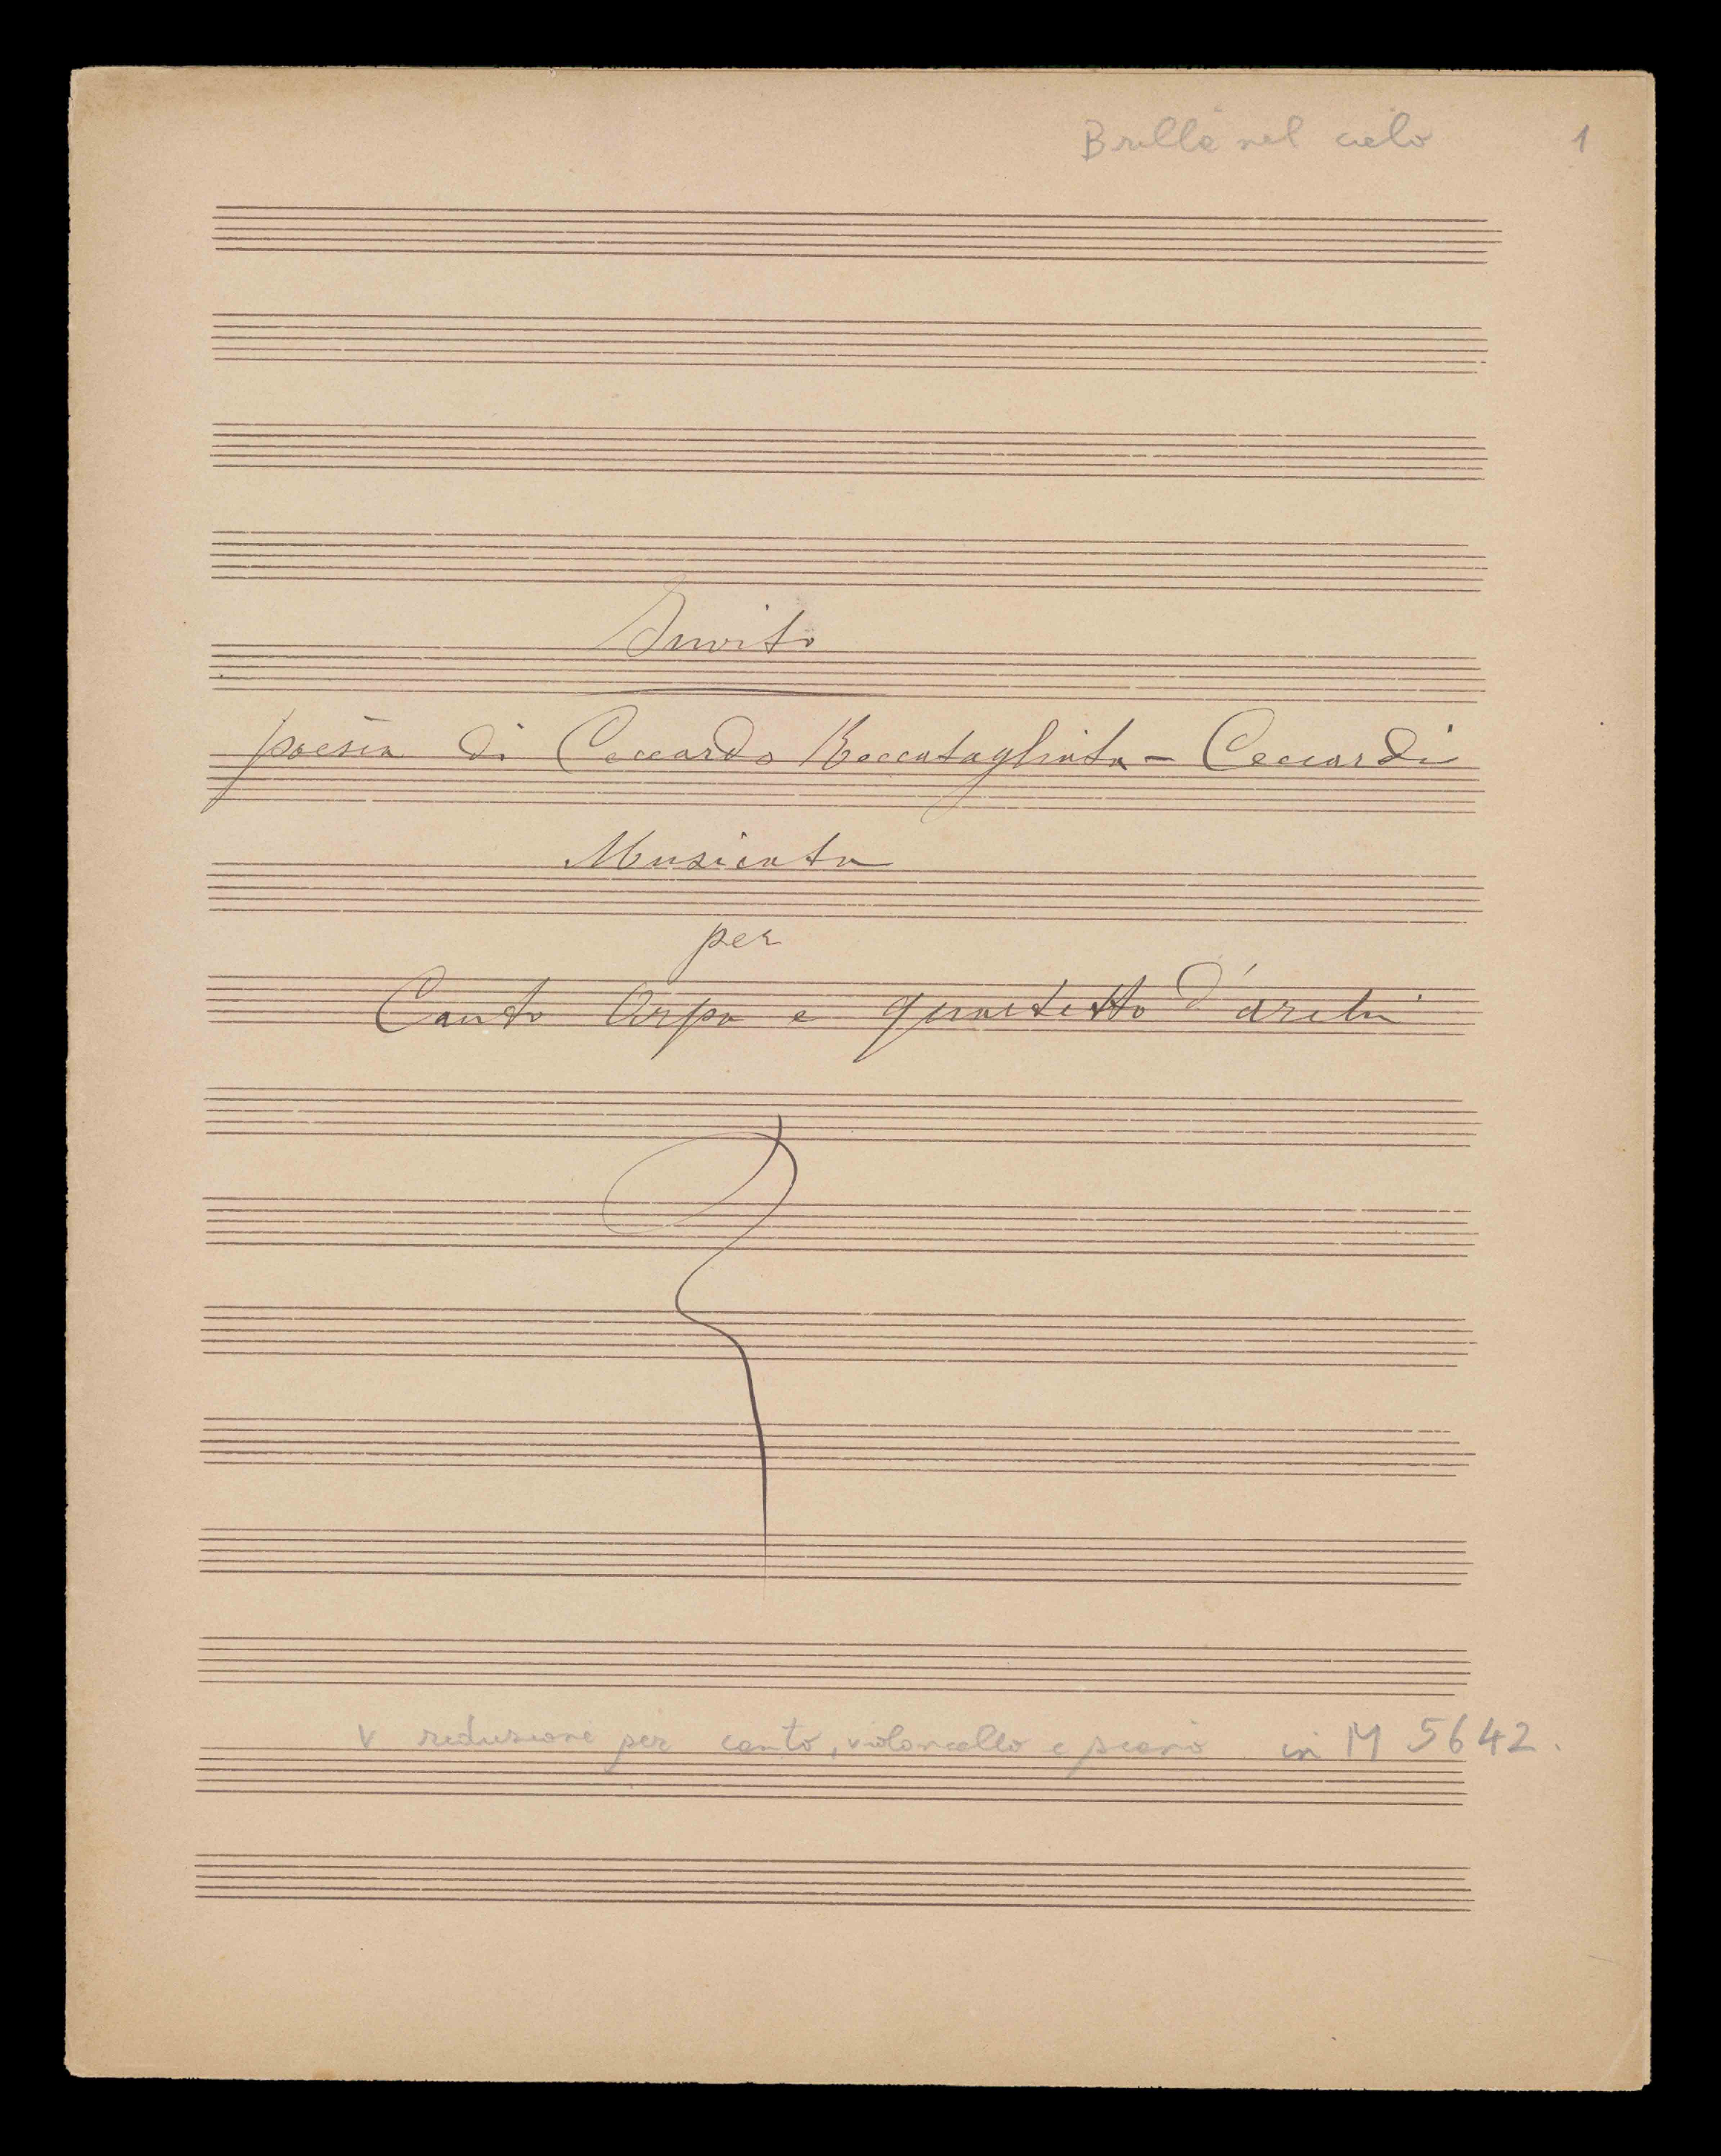 Brilla nel cielo 1
Invito
poesia di Ceccardo Roccatagliata - Ceccardi
Musicata
per
Canto Arpa e quartetto d'archi
V riduzione per canto, violoncello e piano in M 5642.